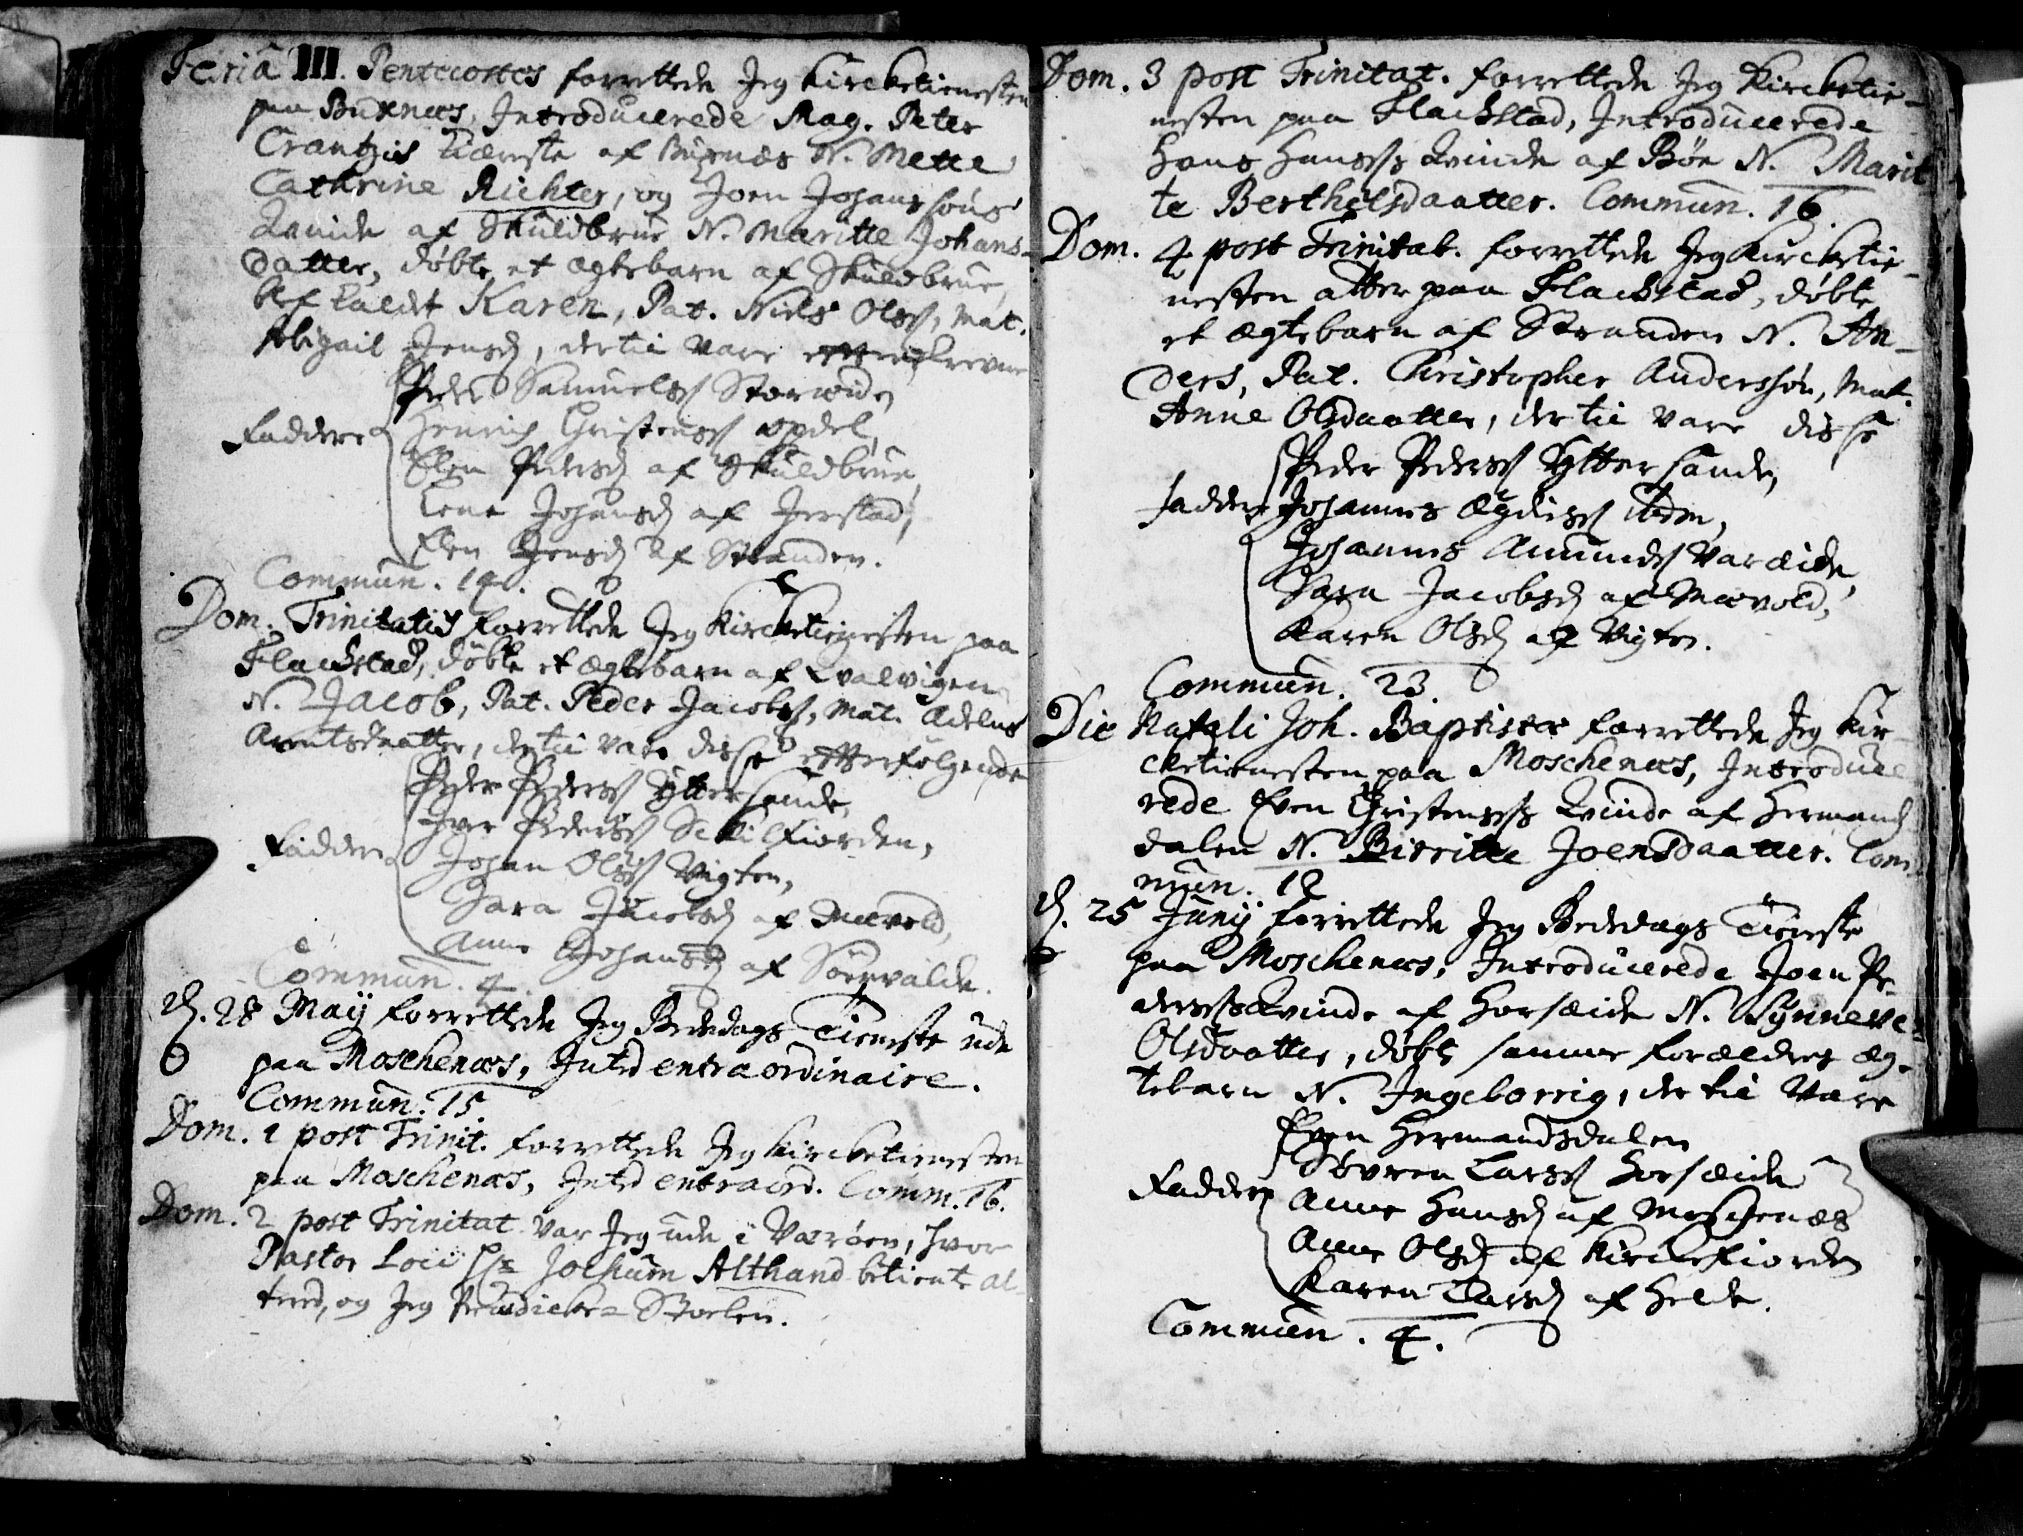 Feriâ III. Pentecostes forrettede Jeg Kircketienesten
paa Buxnæs, Introducerede Mag. Peter
Crantzis Kiæreste af Buxnæs N. Mette
Cathrine Richter, og Joen Johanssøns
Qvinde af Skuldbrue N. Maritte Johans-
datter, døbte et ægtebarn af Skuldbrue,
blef kaldet Karen, Pat. Niels Olsß, Mat.
Abigail Jensd, der til vare
Peder Samuelsß Storwide,
Faddere Henrich Christensß Opdal,
Elen Pedersd af Skuldbrue,
Lene Johansd af Jerstad,
Elen Jensd af Stranden.
Commun. 14.
Dom. Trinitatis forrettede Jeg Kircketienesten paa
Flackstad, døbte et ægtebarn af Qvalvigen
N. Jacob, Pat. Peder Jacobsß, Mat. Adelus
Arentsdaatter, der til vare disse efterfølgende
Peder Pedersß Yttersande,
Iver Pedersß Schilfiorden,
Faddere Johan Olsß Vigten,
Sara Jacobsd af Mævold,
Anne Johansd af Sørrvalde.
Commun. 4.
d. 28 Maij forrettede Jeg Bededags Tieneste ude
paa Moschenæs, Intrd entraordinaire.
Commun. 15.
Dom. 1 post Trinit. forrettede Jeg Kircketienesten
paa Moschenæs, Intrd entraord. Comm. 16.
Dom. 2 post Trinitat var Jeg ude i Værøen, hvor
Pastor Loci Hr Jochum Althand betiente al-
tered, og Jeg Prædicke-Stoelen.
Dom. 3 post Trinitat. forrettede Jeg Kircketie-
nesten paa Flackstad, Introducerede
Hans Hansßs Qvinde af Bøe N. Marit
te Berthelsdaatter. Commun. 16.
Dom. 4 post Trinitat. forrettede Jeg Kircketie-
nesten atter paa Flackstad, døbte
et ægtebarn af Stranden N. An-
ders, Pat. Christopher Anderssøn, Mat.
Anne Olsdaatter, der til vare disse
Peder Pedersß Yttersande,
faddere Johannes Ægidisß ibdm,
Johannes Amundsß Varæide,
Sara Jacobsd af Mævold,
Karen Olsd af Vigten.
Commun. 23.
Die Natali Joh. Baptistæ forrettede Jeg Kir-
cketienesten paa Moschenæs, Introduce
rede Even Christensßs Qvinde af Hermands
dalen N. Birritte Joensdaatter. Com
mun. 12
d. 25 Junij forrettede Jeg Bededags Tieneste
paa Moschenæs, Introducerede Joen Pe-
dersßs Qvinde af Horsæide N. Synneve
Olsdaatter, døbt samme forældres æg-
tebarn N. Ingeborrig, der til vare
Even Hermandsdalen
Søvren Larsß Horsæide
Faddere Anne Hansd af Moschenæs
Anne Olsd af Kirckefiorden
Karen Larsd af Helle.
Commun. 4.